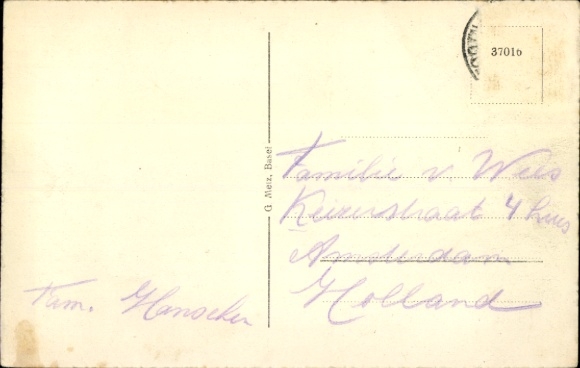 3701b
G. Metz, Basel
Familie v. Wees
Keizerstraat 4 huis
Amsterdam
Holland
Fam.